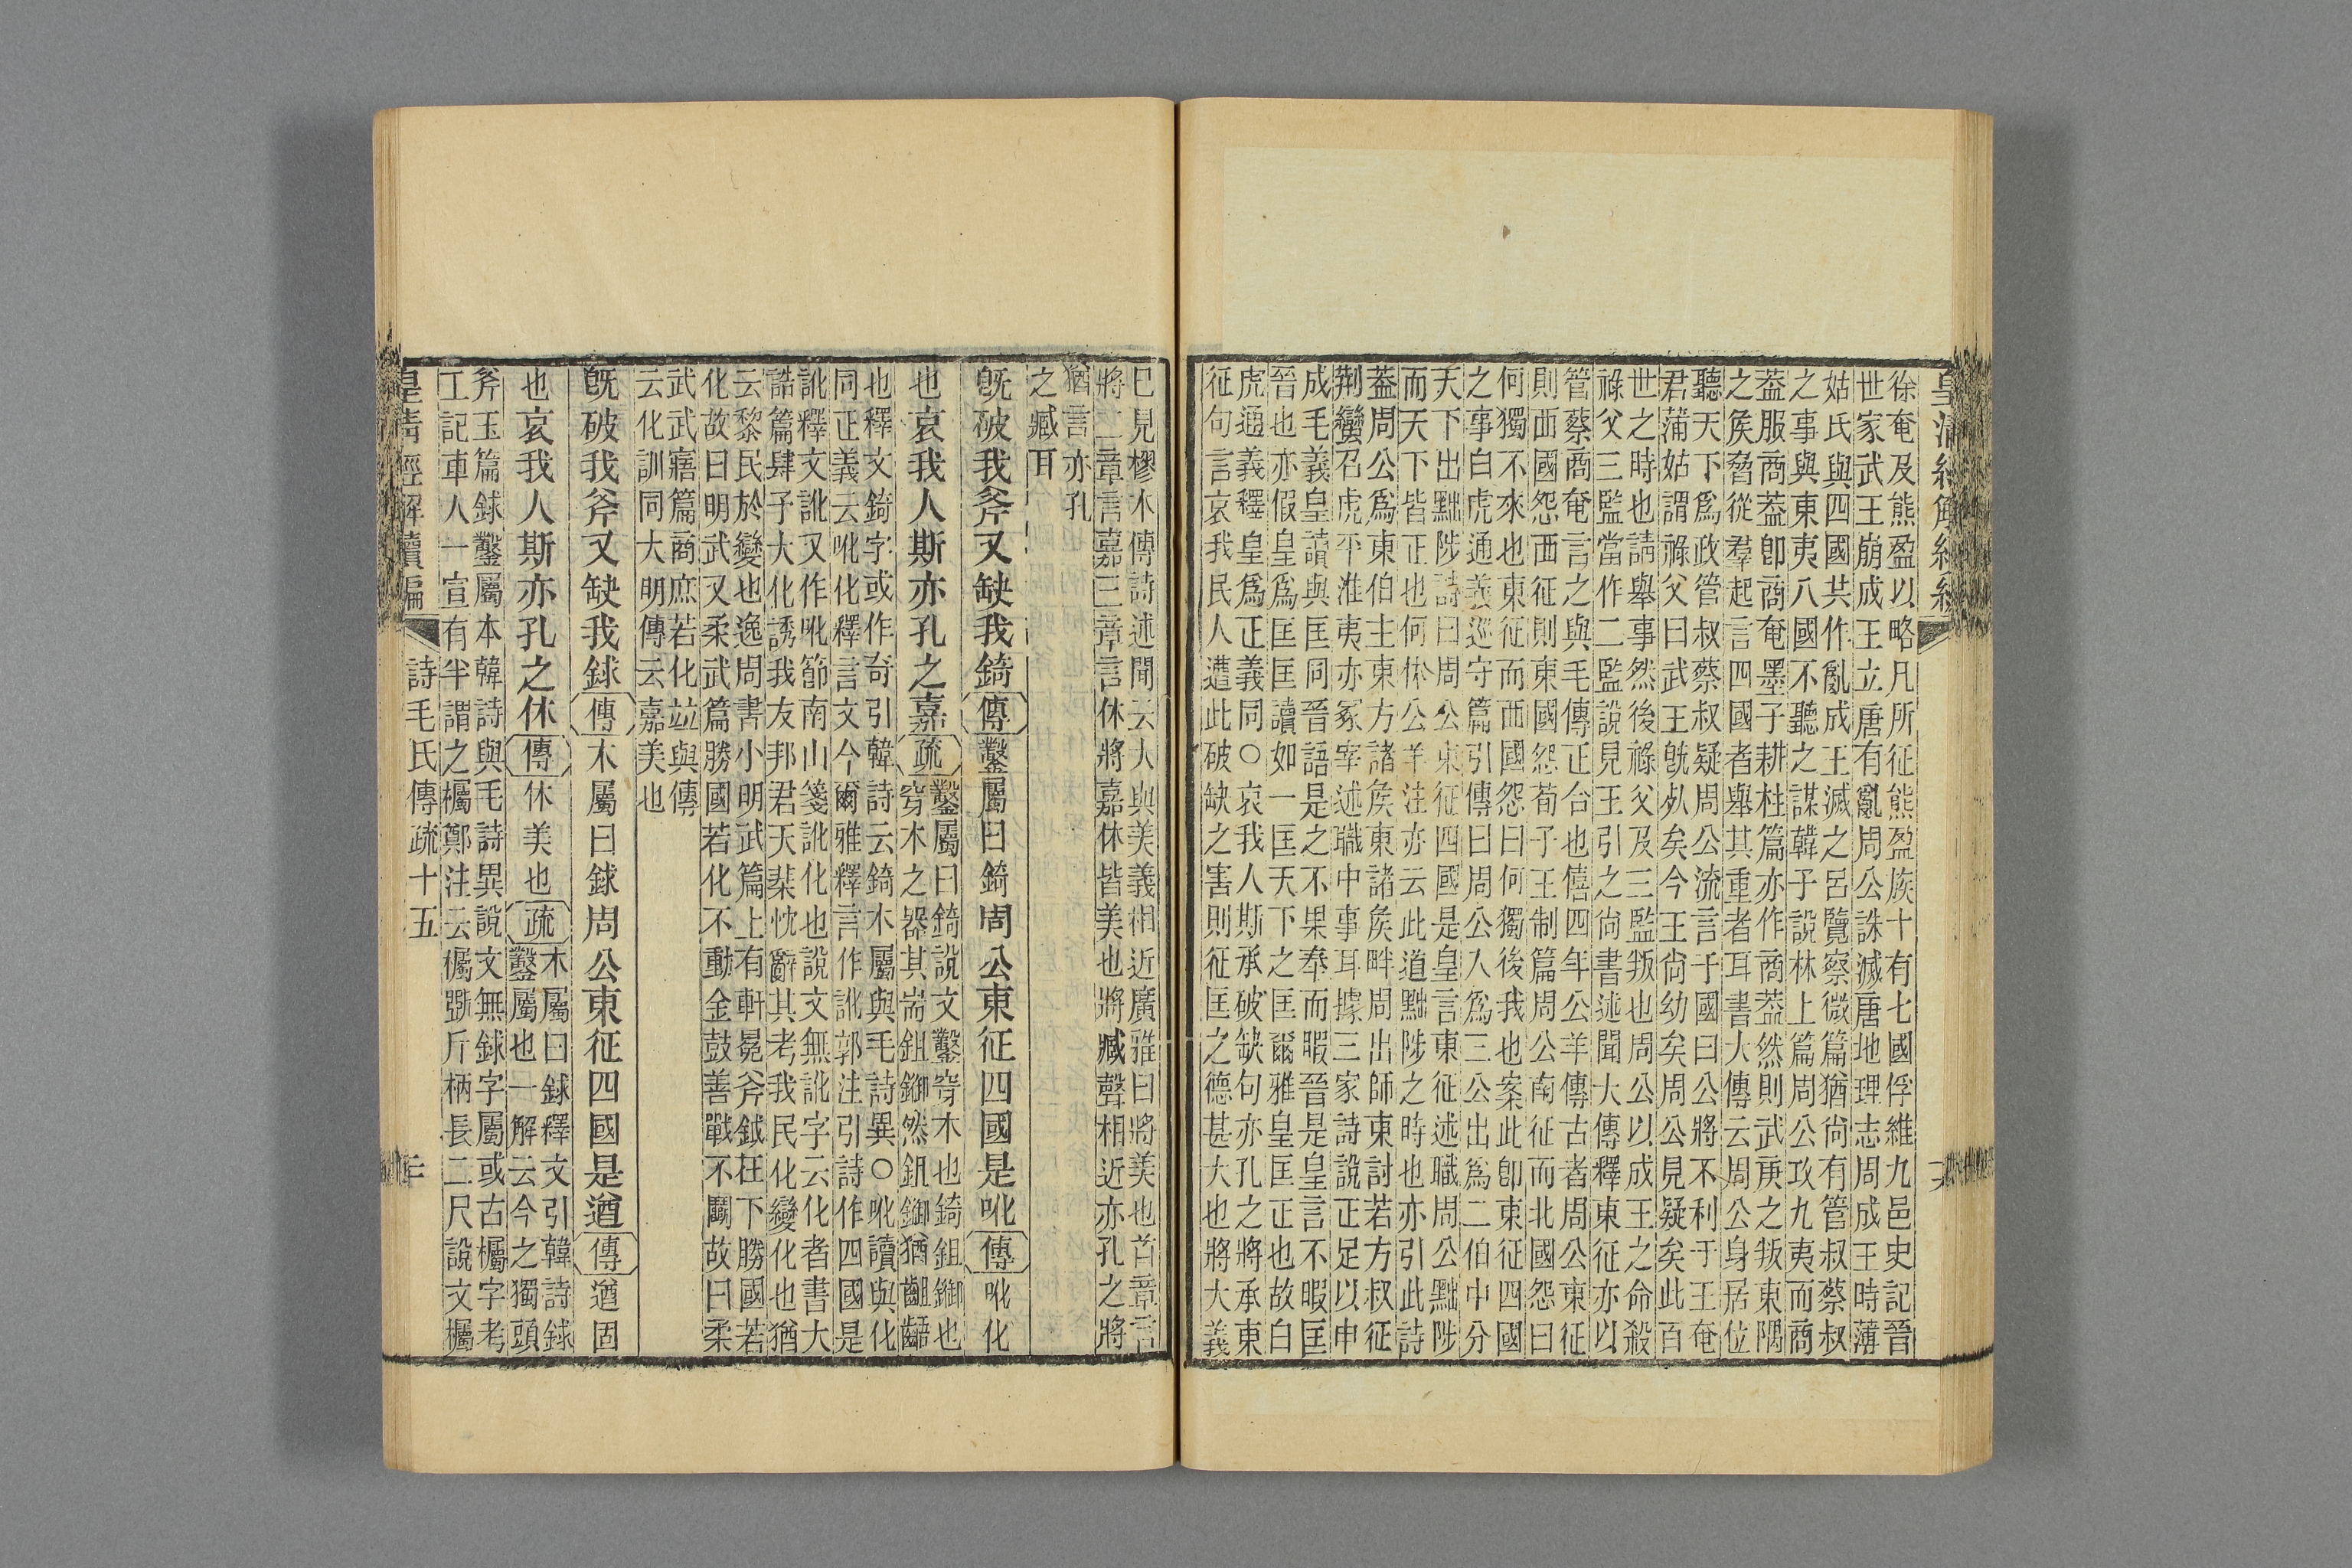 徐奄及熊盈以略凡所征熊盈族十有七國俘維九邑史記晉
世家武王崩成王立唐有亂周公誅滅唐地理志周成王時薄
姑氏與四國共作亂成王滅之呂覽察微篇猶尙有管叔蔡叔
之事與東夷八國不聽之謀韓子說林上篇周公攻九夷而商
葢服商葢卽商奄墨子耕柱篇亦作商葢然則武庚之叛東隅
之矦脅從羣起言四國者舉其重者耳書大傳云周公身居位
聽天下爲政管叔蔡叔疑周公流言于國曰公將不利于王奄
君蒲姑謂祿父曰武王旣𣦸矣今王尙幼矣周公見疑矣此百
世之時也請舉事然後祿父及三監叛也周公以成王之命殺
祿父三監當作二監說見王引之尙書述聞大傳釋東征亦以
管蔡商奄言之與毛傳正合也僖四年公羊傳古者周公東征
則西國怨西征則東國怨荀子王制篇周公南征而北國怨曰
何獨不來也東征而西國怨曰何獨後我也案此卽東征四國
之事白虎通義巡守篇引傳曰周公入爲三公出爲二伯中分
天下出黜陟詩曰周公東征四國是皇言東征述職周公黜陟
而天下皆正也何休公羊注亦云此道黜陟之時也亦引此詩
葢周公爲東伯主東方諸矦東諸矦畔周出師東討若方叔征
荆蠻召虎平淮夷亦冢宰述職中事耳據三家詩說正足以申
成毛義皇讀與匡同晉語是之不果奉而暇晉是皇言不暇匡
晉也亦假皇爲匡匡讀如一匡天下之匡爾雅皇匡正也故白
虎通義釋皇爲正義同○哀我人斯承破缺句亦孔之將承東
征句言哀我民人遭此破缺之害則征匡之德甚大也將大義
皇清經解續編
巳見樛木傳詩述聞云大與美義相近廣雅曰將美也首章言
將二章言嘉三章言休將嘉休皆美也將臧聲相近亦孔之將
猶言亦孔
之臧耳
旣破我斧又缺我錡傳鑿屬曰錡周公東征四國是吪傳吪化
也哀我人斯亦孔之嘉疏鑿屬曰錡說文鑿穿木也錡鉏鋤也
穿木之器其耑鉏鋤然鉏鋤猶齟齬
也釋文錡字或作奇引韓詩云錡木屬與毛詩異○吪讀與化
同正義云吪化釋言文今爾雅釋言作訛郭注引詩作四國是
訛釋文訛又作吪節南山箋訛化也說文無訛字云化者書大
誥篇肆子大化誘我友邦君天棐忱辭其考我民化變化也猶
云黎民於變也逸周書小明武篇上有軒冕斧鉞在下勝國若
化故曰明武又柔武篇勝國若化不動金鼓善戰不鬭故曰柔
武武寤篇商庶若化竝與傳
云化訓同大明傳云嘉美也
旣破我斧又缺我銶傳木屬曰銶周公東征四國是遒傳遒固
也哀我人斯亦孔之休傳休美也疏木屬曰銶釋文引韓詩銶
鑿屬也一解云今之獨頭
斧玉篇銶鑿屬本韓詩與毛詩異說文無銶字屬或古欘字考
工記車人一宣有半謂之欘鄭注云欘斲斤柄長二尺說文欘
皇淸經解續編 詩毛氏傳疏十五